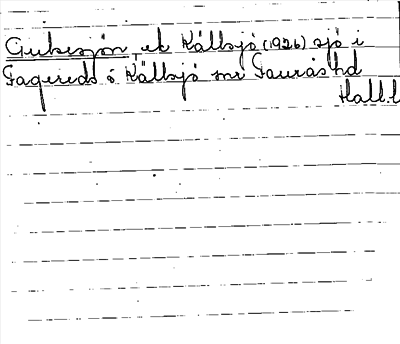 Gubbsjön, ek Källsjö (1926) sjö i
Fagereds o Källsjö snr Faurås hd
Hall. l